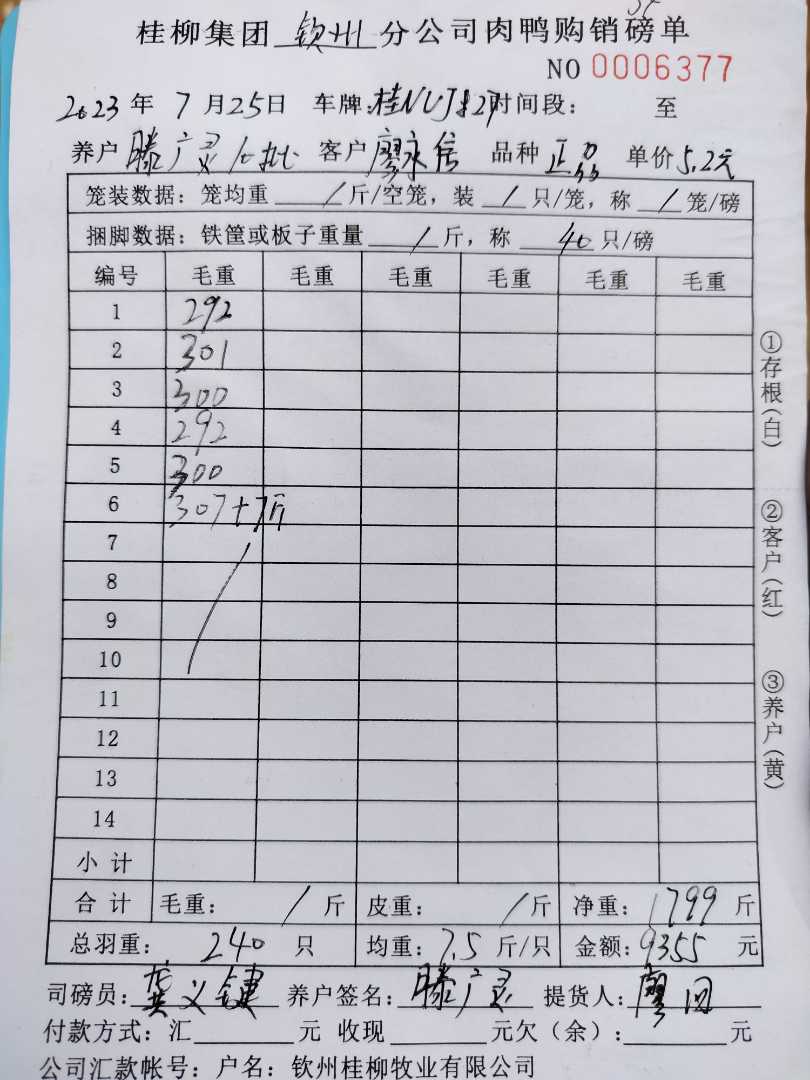 桂柳集团 钦州 分公司肉鸭购销磅单
NO 0006377
2023 年 7 月 25 日 车牌: 时间段: 至
养户 滕广灵 客户 廖永信 品种 正品 单价 5.2元
笼装数据: 笼均重 / 斤/空笼, 装 / 只/笼, 称 / 笼/磅
捆脚数据: 铁筐或板子重量 / 斤, 称 40 只/磅
编号 毛重 毛重 毛重 毛重 毛重 毛重
1 292
2 301
3 300
4 292
5 300
6 307+7斤
7
8
9
10
11
12
13
14
小计
合计 毛重: / 斤 皮重: / 斤 净重: 1799 斤
总羽重: 240 只 均重: 7.5 斤/只 金额: 9355 元
司磅员: 义键 养户签名: 滕广灵 提货人: 廖
付款方式: 汇 元 收现 元欠(余): 元
公司汇款帐号: 户名: 钦州桂柳牧业有限公司
①存根(白)
②客户(红)
③养户(黄)